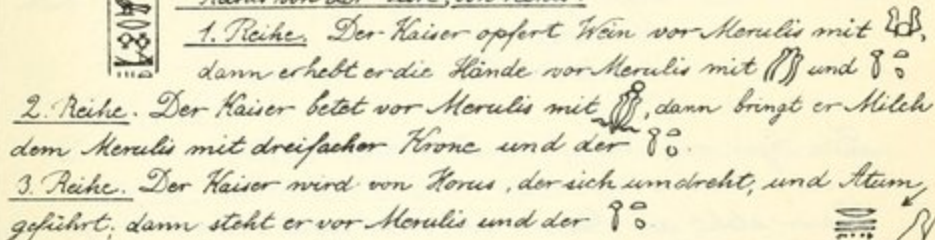 1. Reihe. Der Kaiser opfert Wein vor Merulis mit ,
dann erhebt er die Hände vor Merulis mit und
2. Reihe. Der Kaiser betet vor Merulis mit , dann bringt er Milch
dem Merulis mit dreifacher Krone und der .
3. Reihe. Der Kaiser wird von Horus, der sich umdreht, und Atum,
geführt; dann steht er vor Merulis und der